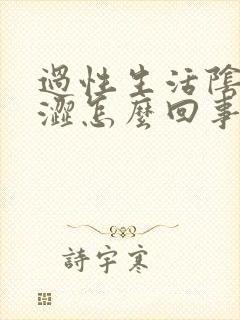 過性生活陰
澀怎麼回事
詩宇寒